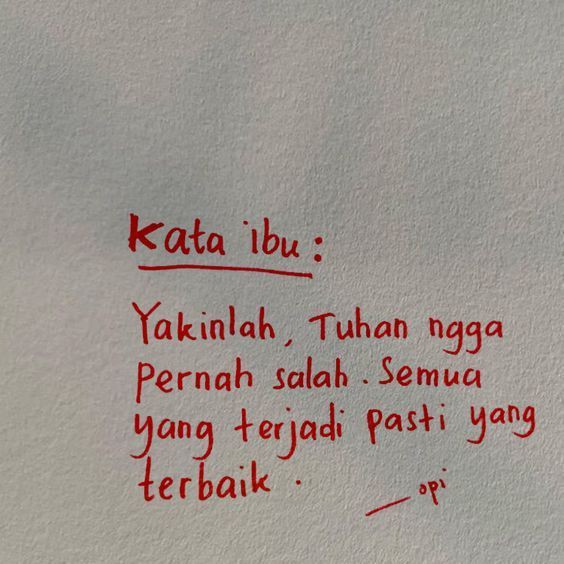 Kata ibu:
Yakinlah, Tuhan ngga
pernah salah. Semua
yang terjadi pasti yang
terbaik.
— opi